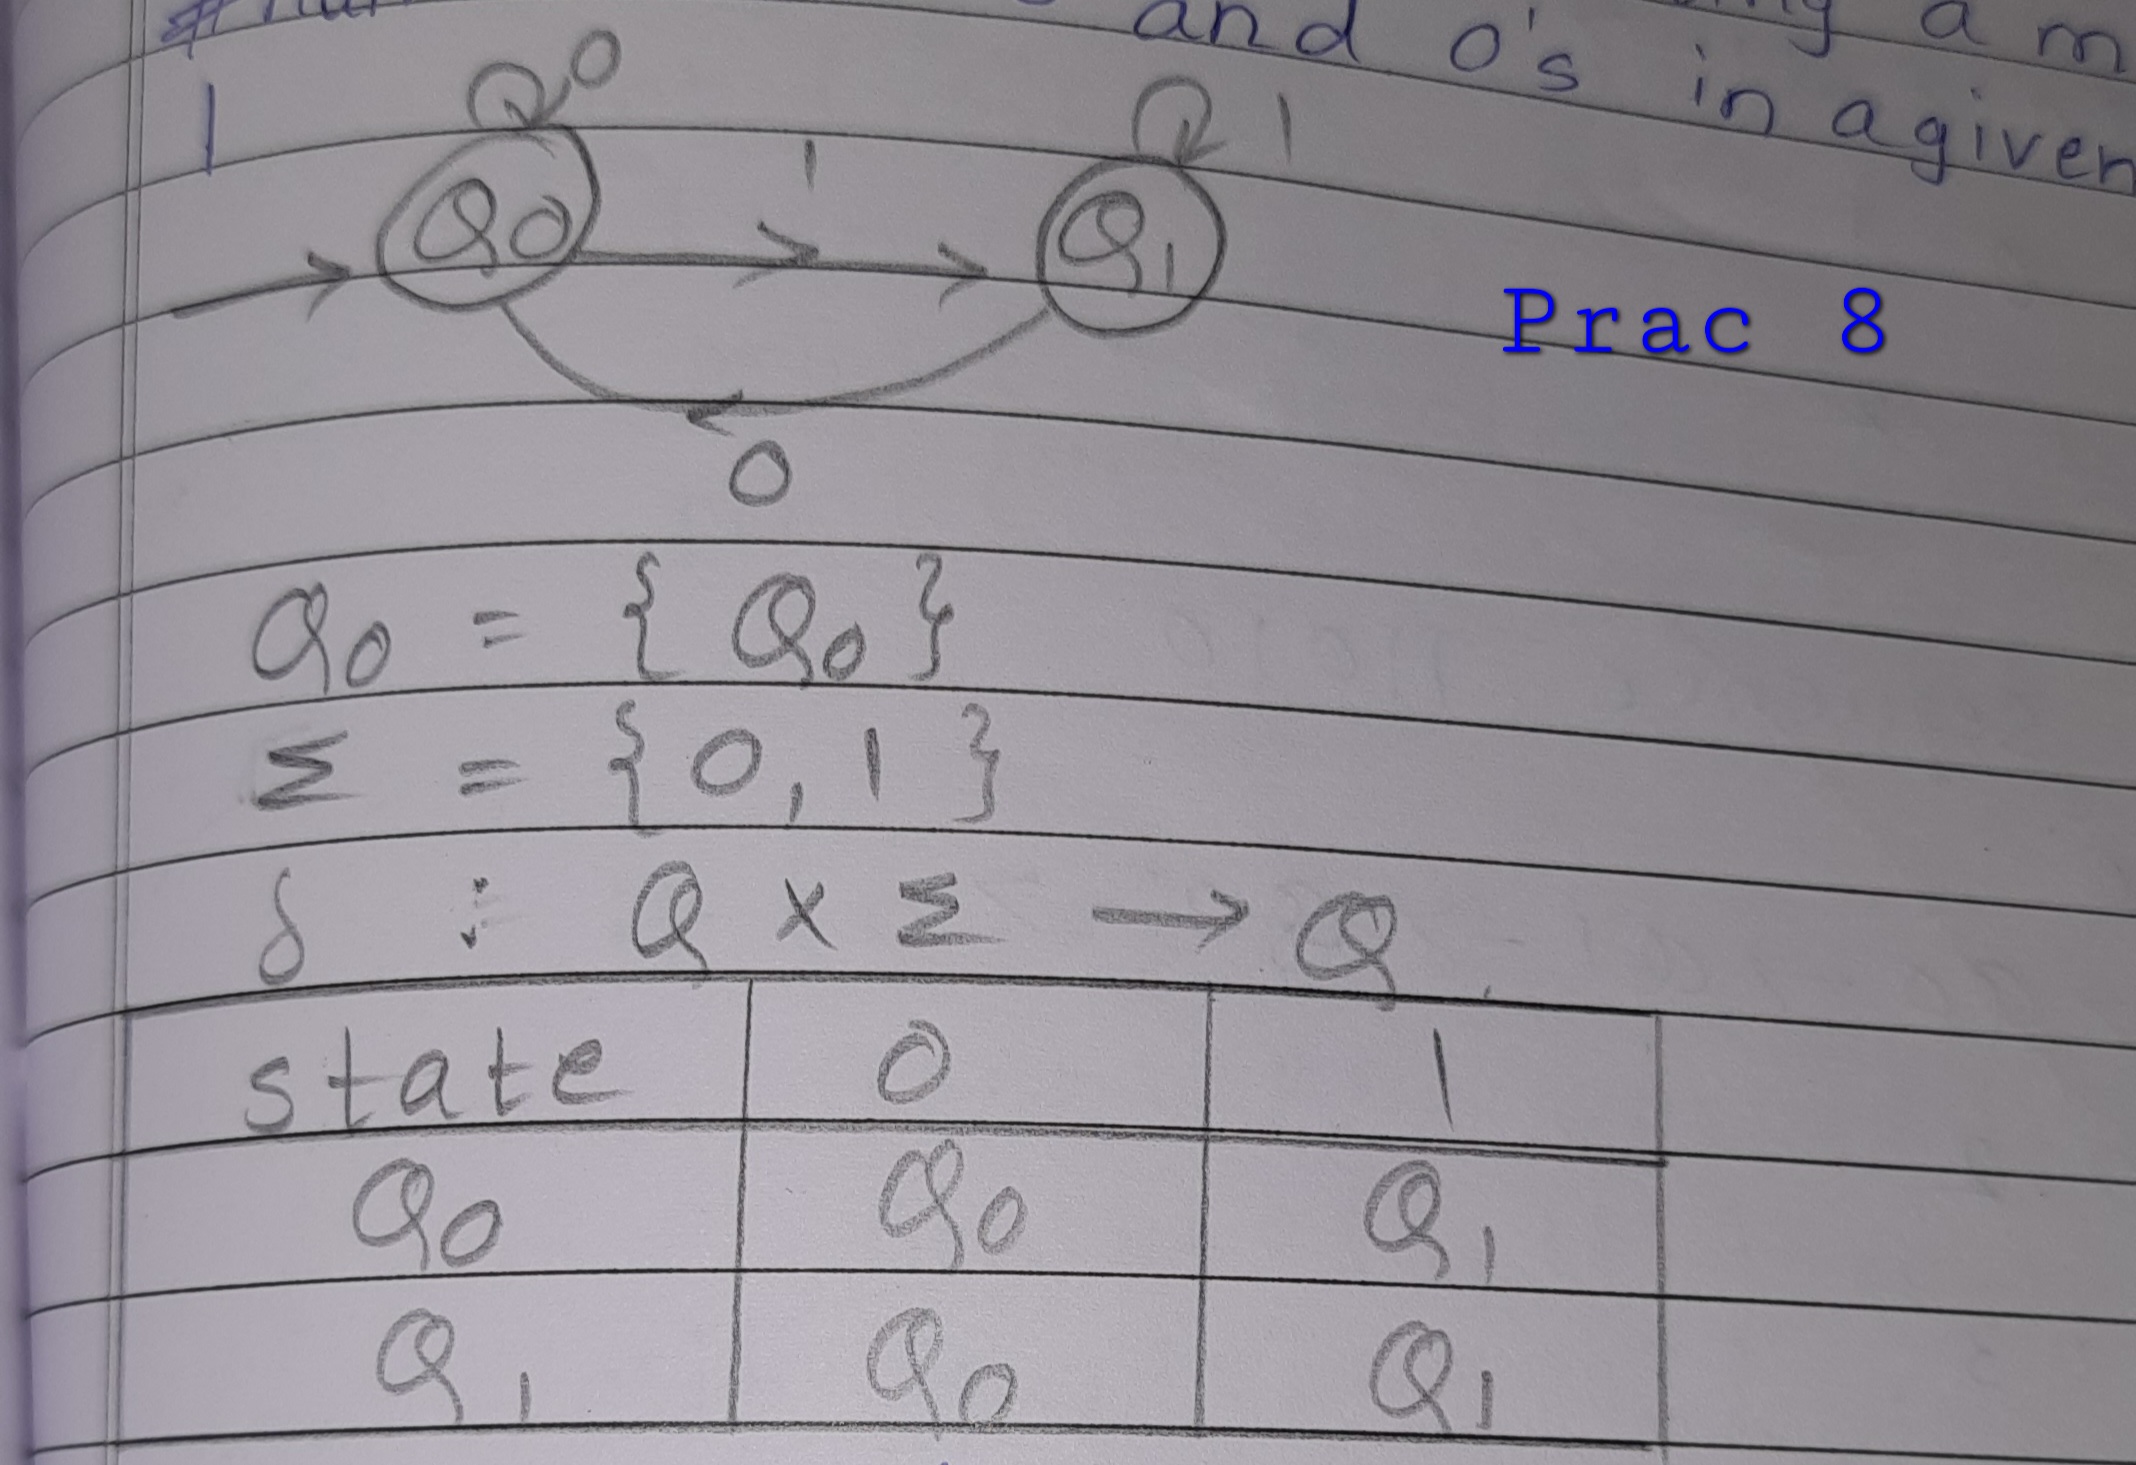 and 0's in a given
a m
1
0
1
1
Q0
Q1
Prac 8
0
Q0 = { Q0 }
Σ = { 0, 1 }
δ : Q x Σ → Q
state 0 1
Q0 Q0 Q1
Q1 Q0 Q1